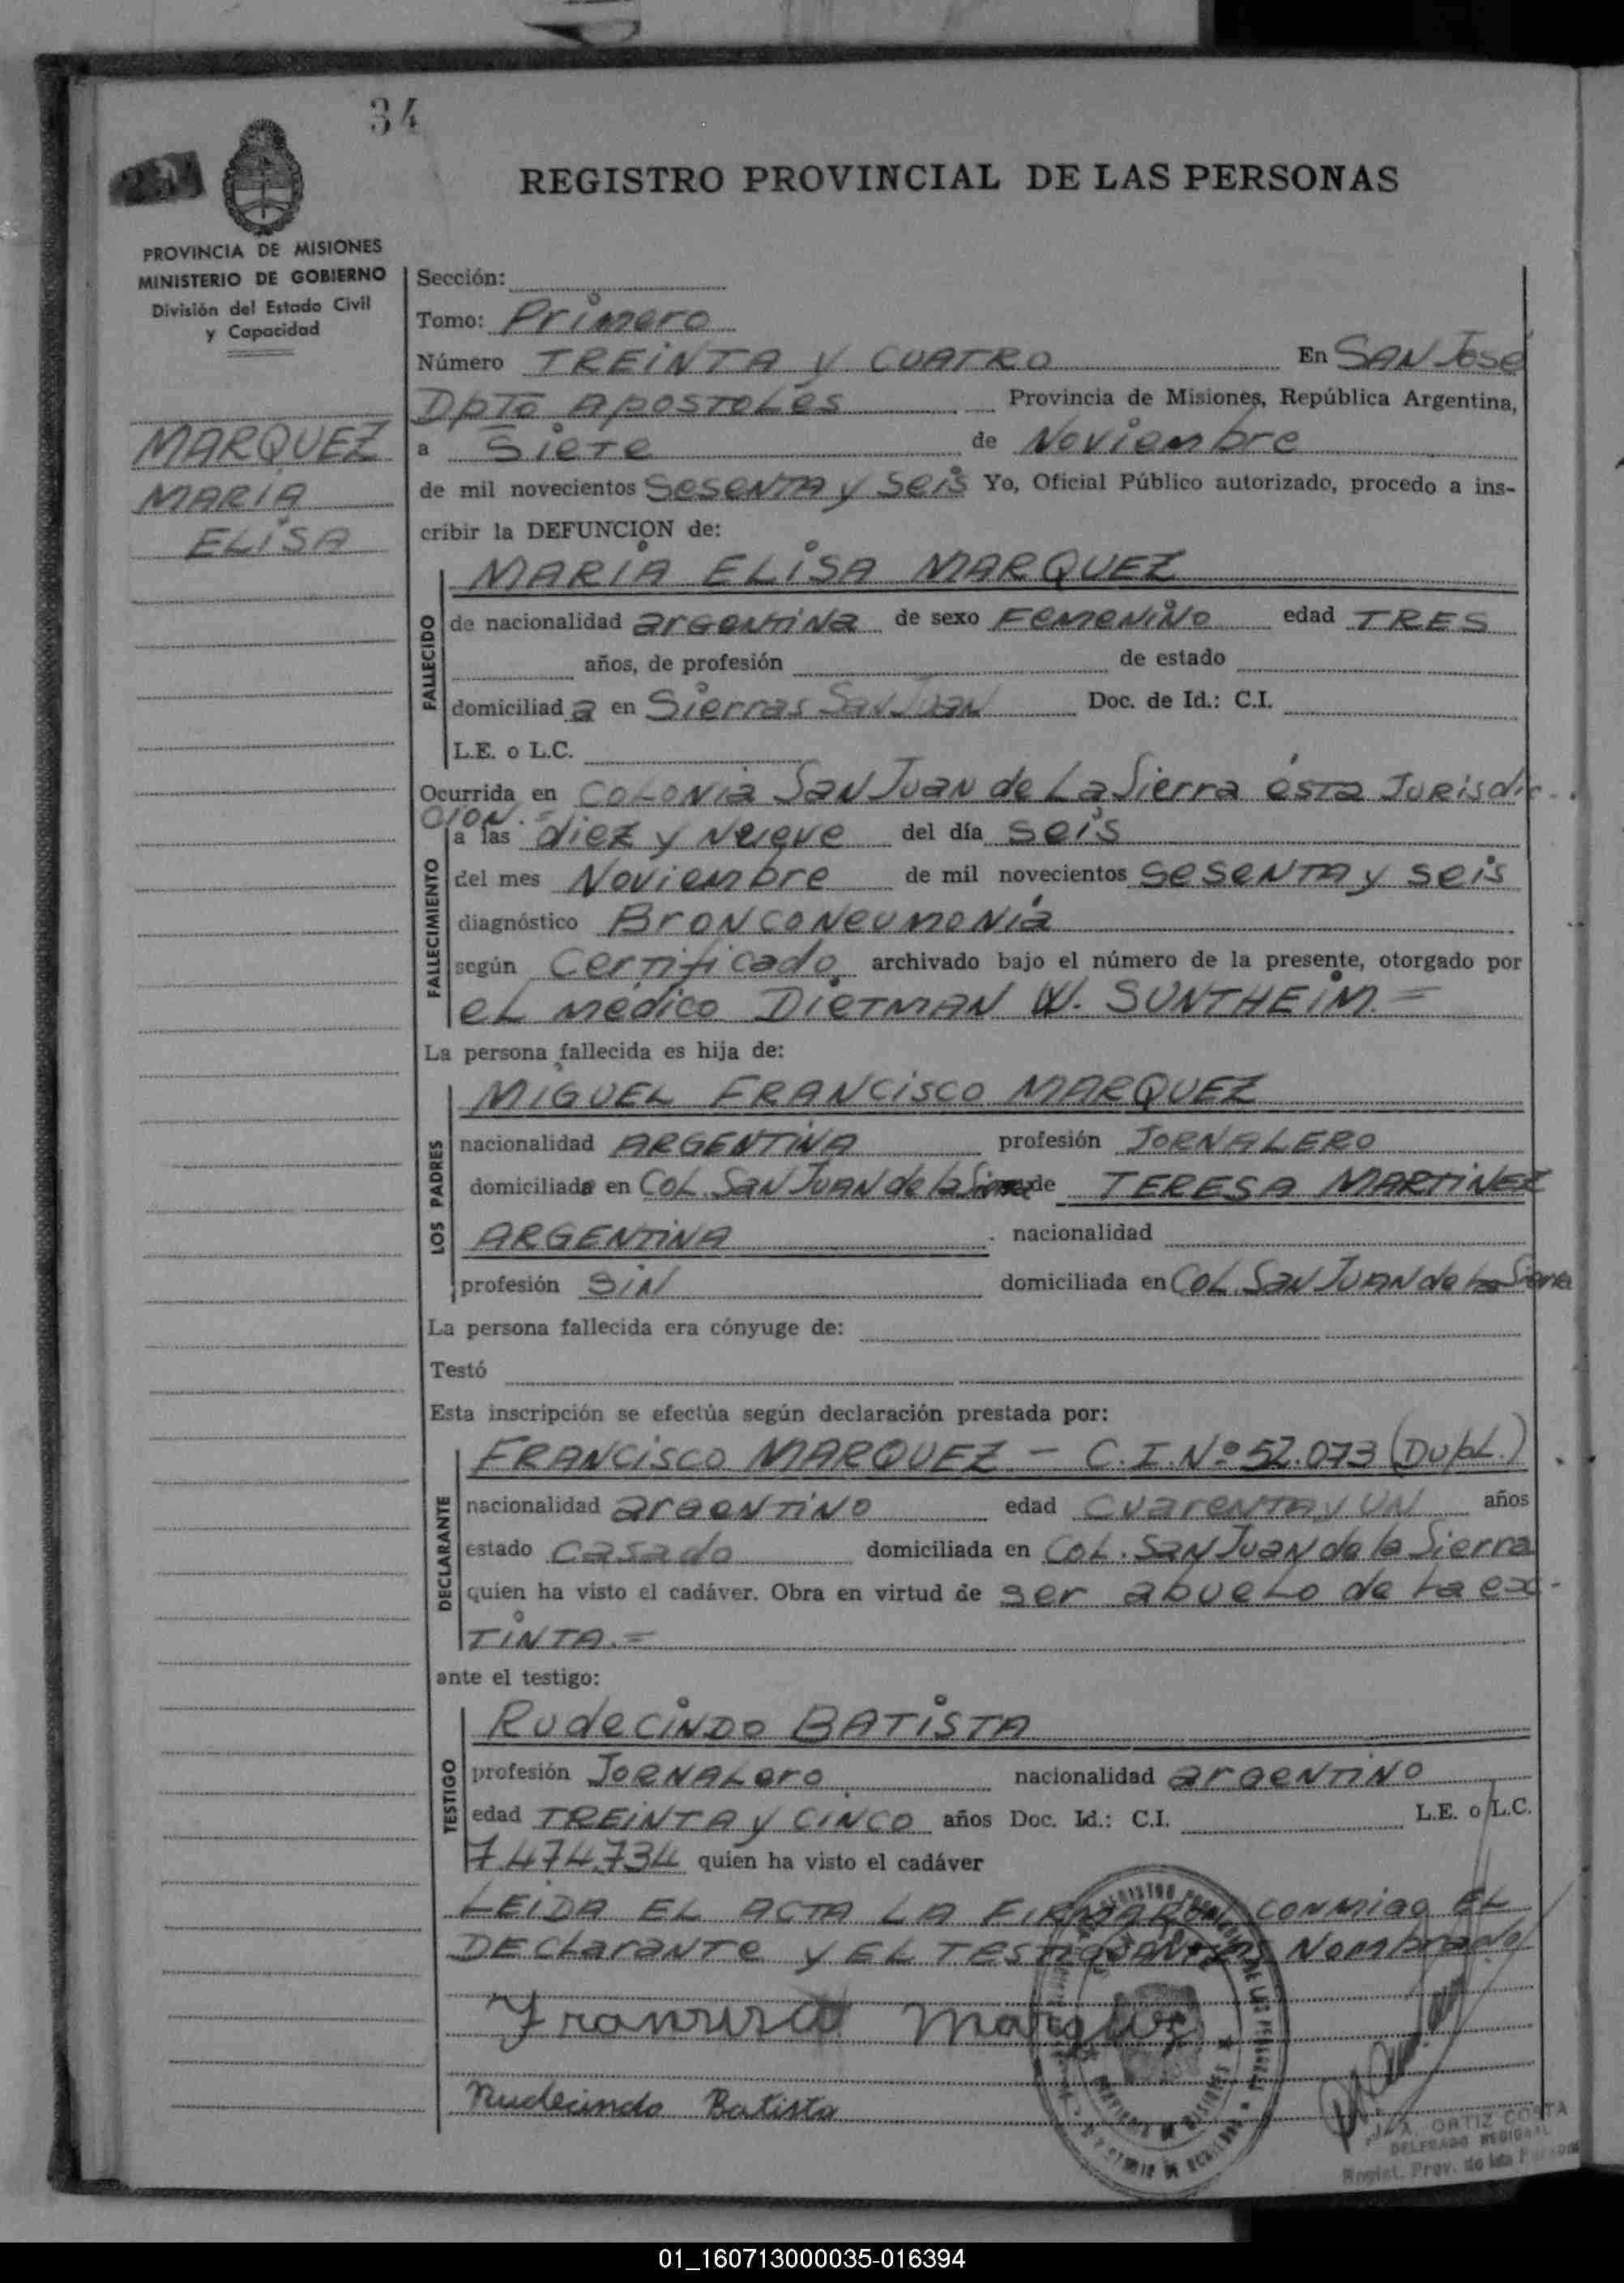 34
REGISTRO PROVINCIAL DE LAS PERSONAS
PROVINCIA DE MISIONES
MINISTERIO DE GOBIERNO
División del Estado Civil
y Capacidad
MARQUEZ
MARIA
ELISA
Sección:
Tomo: Primero
Número TREINTA y CUATRO En SAN José
DpTo APOSTOLES Provincia de Misiones, República Argentina,
a SieTe de Noviembre
de mil novecientos SeSeNTA y Seis Yo, Oficial Público autorizado, procedo a ins-
cribir la DEFUNCION de:
MARIA ELISA MARQUEZ
FALLECIDO
de nacionalidad argentina de sexo Femenino edad TRES
años, de profesión de estado
domiciliad a en Sierras San Juan Doc. de Id.: C.I.
L.E. o L.C.
Ocurrida en Colonia San Juan de La Sierra ésta Jurisdic-
ción.=
FALLECIMIENTO
a las diez y Nueve del día seis
del mes Noviembre de mil novecientos SeSeNTA y seis
diagnóstico Bronconeumonía
según Certificado archivado bajo el número de la presente, otorgado por
el médico DIETMAN W. SUNTHEIM.=
La persona fallecida es hija de:
LOS PADRES
MIGUEL FRANCISCO MARQUEZ
nacionalidad ARGENTINA profesión JORNALERO
domiciliada en Col. San Juan de la Sierra de TERESA MARTINEZ
ARGENTINA . nacionalidad
profesión SIN domiciliada en Col. San Juan de La Sierra
La persona fallecida era cónyuge de:
Testó
Esta inscripción se efectúa según declaración prestada por:
DECLARANTE
FRANCISCO MARQUEZ - C.I. Nº 52.073 (Dupl.)
nacionalidad argentino edad cuarenta y UN años
estado casado domiciliada en Col. San Juan de la Sierra
quien ha visto el cadáver. Obra en virtud de ser abuelo de la ex-
TINTA.=
ante el testigo:
TESTIGO
RUDECINDO BATISTA
profesión Jornalero nacionalidad argentino
edad TREINTA y CINCO años Doc. Id.: C.I. L.E. o L.C.
7.474.734 quien ha visto el cadáver
LEIDA EL ACTA LA FIRMARON CONMIGO EL
DECLARANTE y EL TESTIGO ANTES Nombrado
Francisco Marquez
Rudecindo Batista
J. A. ORTIZ COSTA
DELEGADO REGIONAL
Regist. Prov. de las
01_160713000035-016394